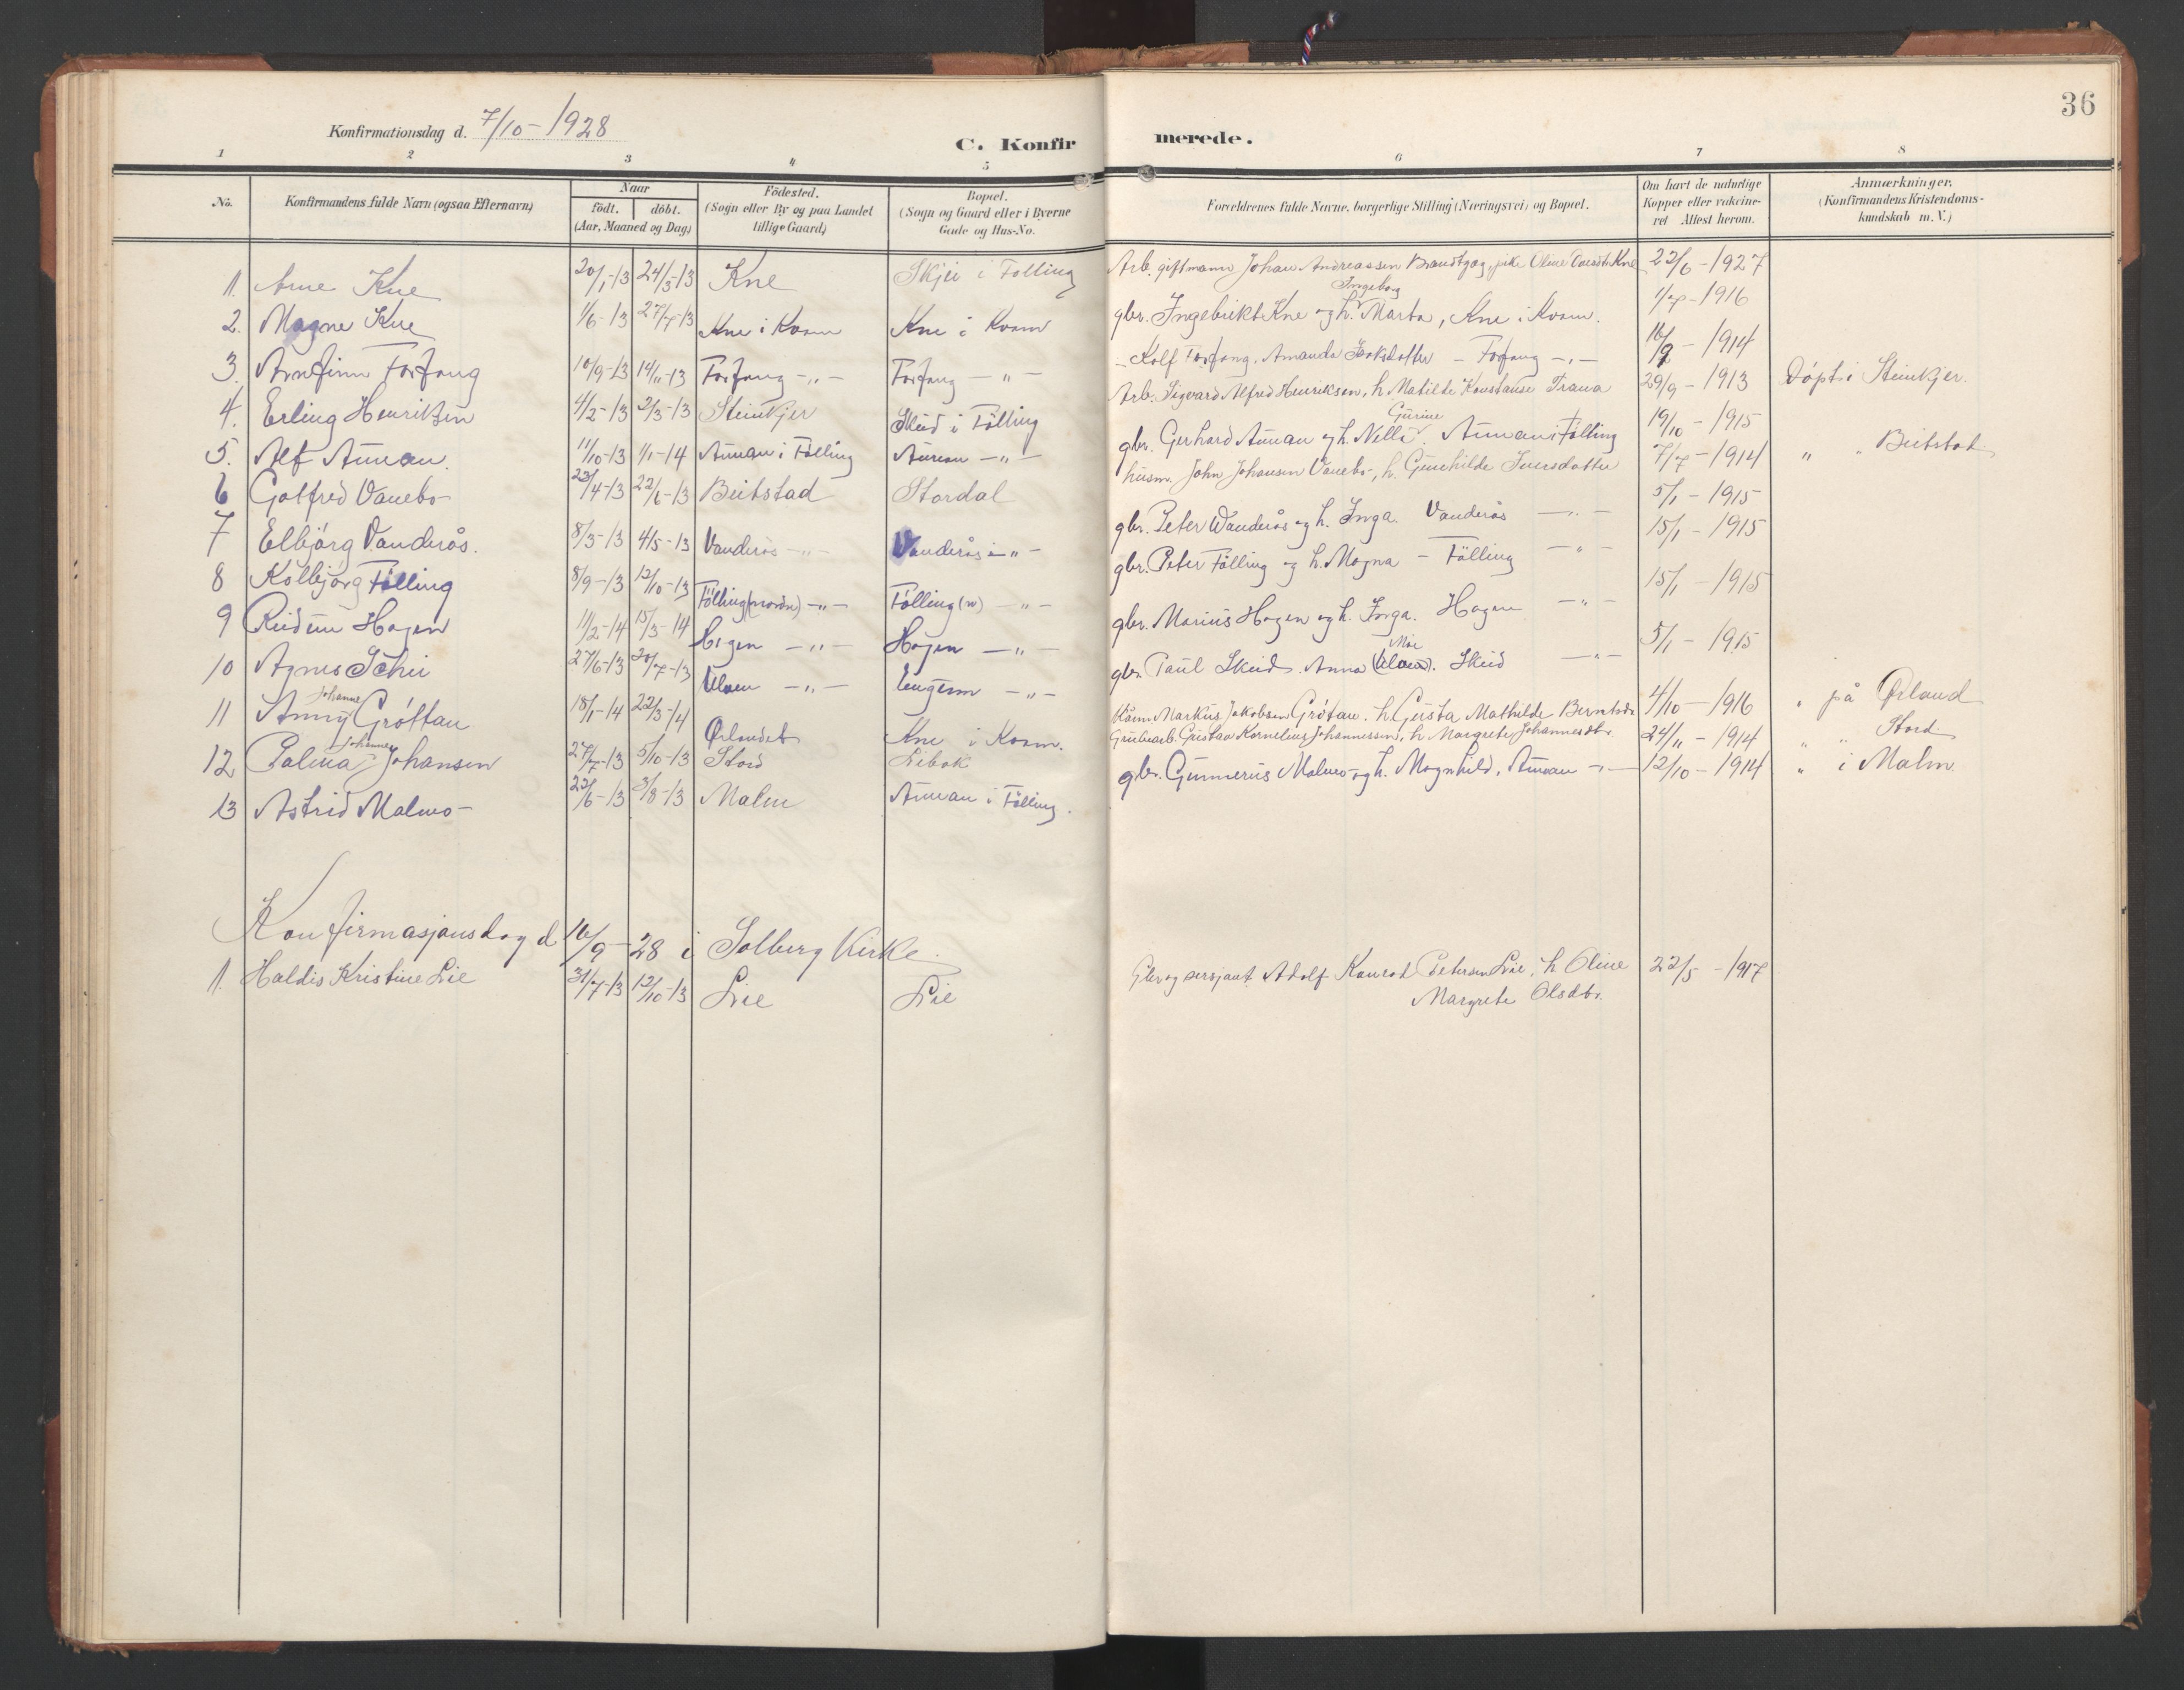 36
Konfirmationsdag d. 7/10 - 1928
C. Konfirmerede.
1 2 3 4 5 6 7 8
No. Konfirmandens fulde Navn (ogsaa Efternavn) Naar födt. döbt. (Aar, Maaned og Dag) Födested. (Sogn eller By og paa Landet tillige Gaard) Bopæl. (Sogn og Gaard eller i Byerne Gade og Hus-No. Forældrenes fulde Navne, borgerlige Stilling (Næringsvei) og Bopæl. Om havt de naturlige Kopper eller vakcineret Attest herom. Anmærkninger. (Konfirmandens Kristendomskundskab m. V.)
1. Arne Kne 20/1-13 24/3-13 Kne Skjei i Følling Arb. giftmann Johan Andreassen Brandtzæg, pike Oline Kne 23/6 - 1927
2. Magne Kne 1/6-13 27/7-13 Kne i Kvam Kne i Kvam gbr. Ingebrikt Kne og h. Ingeborg Marta, Kne i Kvam. 1/7 - 1916
3. Arnfinn Forfang 10/9-13 14/11-13 Forfang -"- Forfang -"- - Rolf Forfang, Amanda Isaksdatter - Forfang -"- 16/9 - 1914
4. Erling Henriksen 4/2-13 2/3-13 Steinkjer Skeid i Følling Arb. Sigvard Alfred Henriksen, h. Matilde Konstanse Trana 29/9 - 1913 Døpt i Steinkjer.
5. Alf Aunan. 11/10-13 1/1-14 Aunan i Følling Aunan -"- gbr. Gerhard Aunan og h. Nelli Gurine. Aunan i Følling 19/10 - 1915
6 Gotfred Vanebo 23/4-13 22/6-13 Beitstad Stordal husm. John Johansen Vanebo, h. Gunhilde 7/7 - 1914 " " Beitstad
7 Elbjörg Vanderås. 8/3-13 4/5-13 Vanderås -"- Vanderås i -"- gbr. Peter Vanderås og h. Inga. Vanderås -"- 5/1 - 1915
8 Kolbjörg Fölling 8/9-13 12/10-13 Fölling (nordn) -"- Fölling (n) -"- gbr. Peter Fölling og h. Magna - Fölling -"- 15/1 - 1915
9 Reidun Hagen 11/2-14 15/3-14 Hagen -"- Hagen -"- gbr. Marius Hagen og h. Inga. Hagen -"- 15/1 - 1915
10 Agnes 27/6-13 20/7-13 Ulven -"- -"- gbr. Paul Skeid. Anna (Ulven) Moe. Skeid -"- 5/1 - 1915
11 Anny Johanne Gröttan 18/1-14 22/3-14 Ørlandet Kne i Kvam. Markus Jakobsen Grøtan. h. Gusta Mathilde Berntsdtr 4/10 - 1916 " på Ørland
12 Palma Johanne Johansen 27/7-13 5/10-13 Stord Libak Grubearb. Gustav Kornelius Johannessen, h. Margrete Johannesdtr. 24/11 - 1914 " " Stord.
13 Astrid Malmo 22/6-13 3/8-13 Malm Aunan i Fölling. gbr. Gunnerius Malmo og h. Magnhild, Aunan -"- 12/10 - 1914 " i Malm.
Konfirmasjonsdag d 16/9 - 28 i Solberg Kirke.
1. Haldis Kristine Lie 31/7-13 12/10-13 Lie Lie Gbr og sersjant Adolf Konrad Petersen Lie, h. Oline 22/5 - 1917
Margrete Olsdtr.